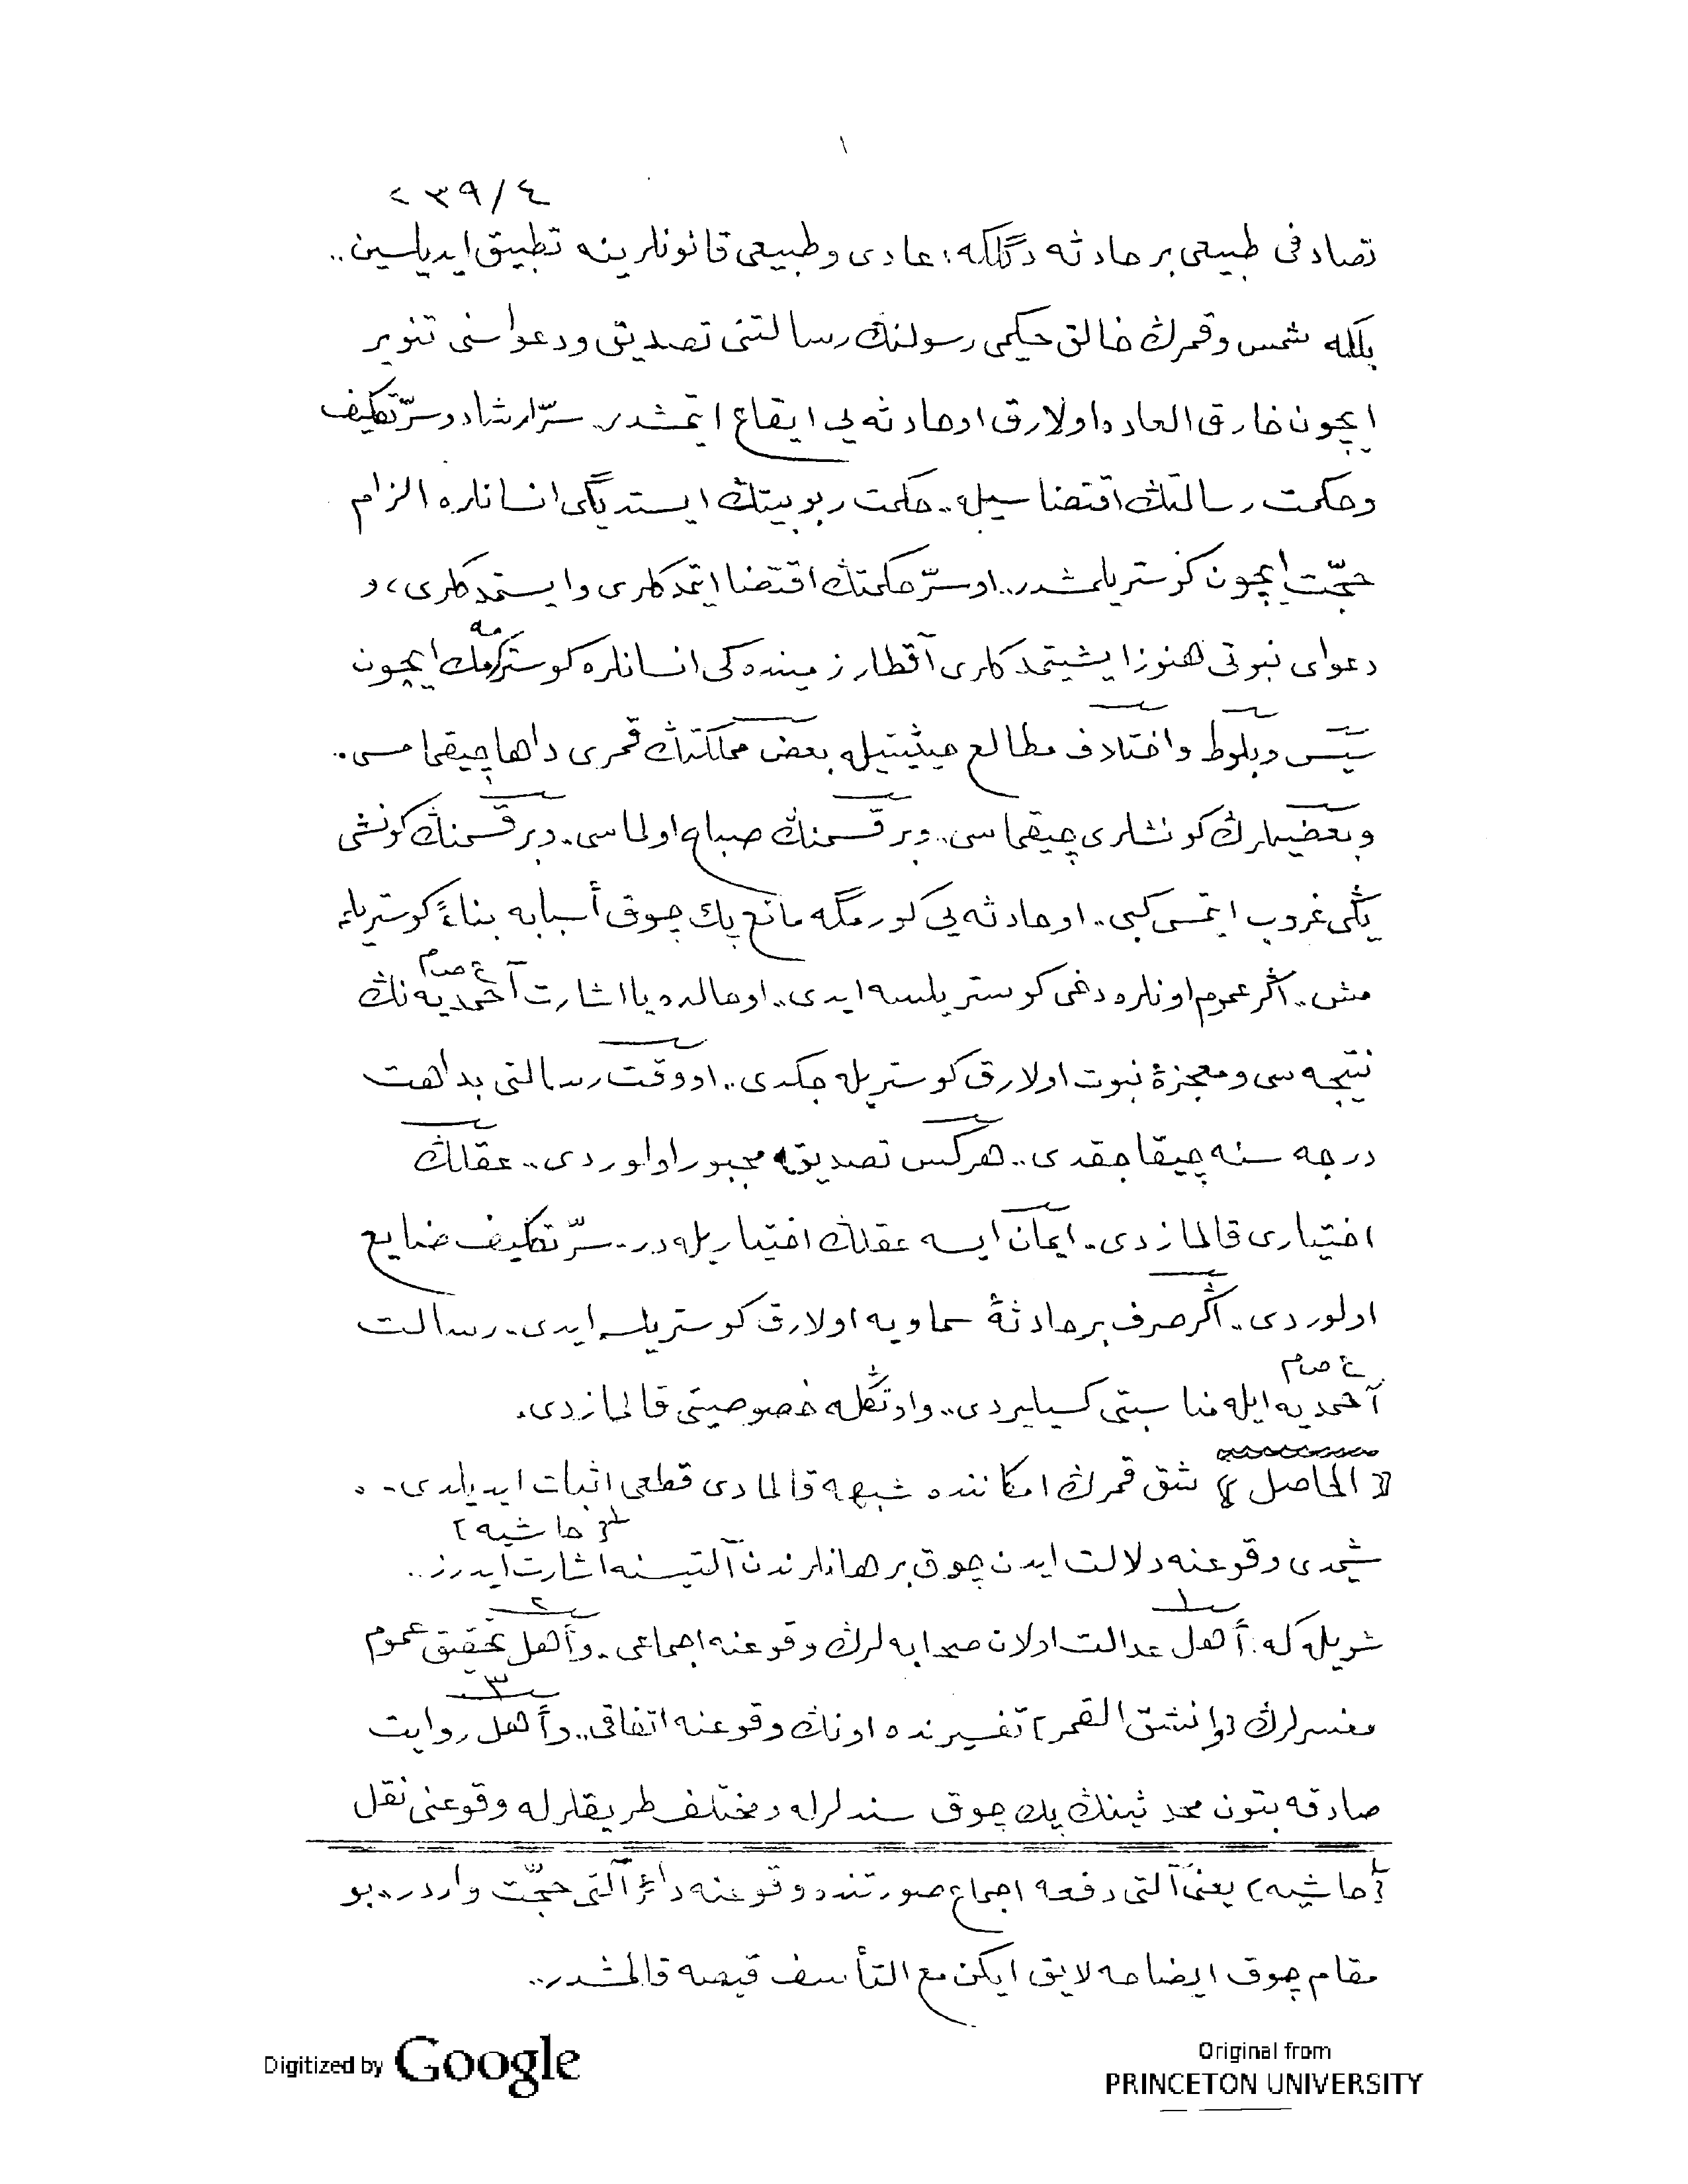 ١
٢٣٩/٤
تصادفى طبيعى بر حادثه دگلكه؛ عادى وطبيعى قانونلرينه تطبيق ايديلسين..
بلكه شمس وقمرڭ خالق حكيمى رسولنڭ رسالتنى تصديق ودعواسنى تنوير
ايچون خارق العاده اولارق اوحادثه يى ايقاع ايتمشدر. سرّ ارشاد وسرّ تكليف
وحكمت رسالتڭ اقتضاسيله.. حكمت ربوبيتڭ ايستديگى انسانلره الزام
حجّت ايچون كوستريلمشدر.. اوسرّ حكمتڭ اقتضا ايتمدكلرى وايستمدكلرى، و
دعواى نبوتى هنوز ايشيتمدكلرى آقطار زمينده كى انسانلره كوسترمه مك ايچون
سيس وبلوط واختلاف مطالع حيثيتيله بعض مملكتڭ قمرى داها چيقمامسى.
وبعضيلرڭ كونشلرى چيقماسى.. وبر قسمنڭ صباح اولماسى.. وبر قسمنڭ كونشى
يڭى غروب ايتمسى كبى.. اوحادثه يى كورمگه مانع پك چوق أسبابه بناءً كوستريلمه
مش.. اگر عموم اونلره دخى كوستريلسه ايدى.. اوحالده يا اشارت آحمديه نڭ ع صم
نتيجه سى ومعجزۀ نبوت اولارق كوستريله جكدى.. اووقت رسالتى بداهت
درجه سنه چيقاجقدى.. هركس تصديقه مجبور اولوردى.. عقلڭ
اختيارى قالمازدى.. ايمان ايسه عقلڭ اختياريله در.. سرّ تكليف ضايع
اولوردى.. اگر صرف بر حادثۀ سماويه اولارق كوستريلسه ايدى.. رسالت
آحمديه ع صم ايله مناسبتى كسيليردى.. واونڭله خصوصيتى قالمازدى.
﴿الحاصل﴾ شق قمرڭ امكاننده شبهه قالمادى قطعى اثبات ايديلدى..
شيمدى وقوعنه دلالت ايدن چوق برهانلرندن آلتيسنه [حاشيه] اشارت ايدرز..
شويله كه: ١ أهل عدالت اولان صحابه لرڭ وقوعنه اجماعى.. ٢ وأهل تحقيق عموم
مفسرلرڭ [وانشق القمر] تفسيرنده اونڭ وقوعنه اتفاقى.. ٣ وأهل روايت
صادقه بتون محدثينڭ پك چوق سندلرله ومختلف طريقلرله وقوعنى نقل
[حاشيه] يعنى آلتى دفعه اجماع صورتنده وقوعنه دائر آلتى حجّت واردر.. بو
مقام چوق ايضاحه لايق ايكن مع التأسف قيصه قالمشدر..
Digitized by Google
Original from
PRINCETON UNIVERSITY